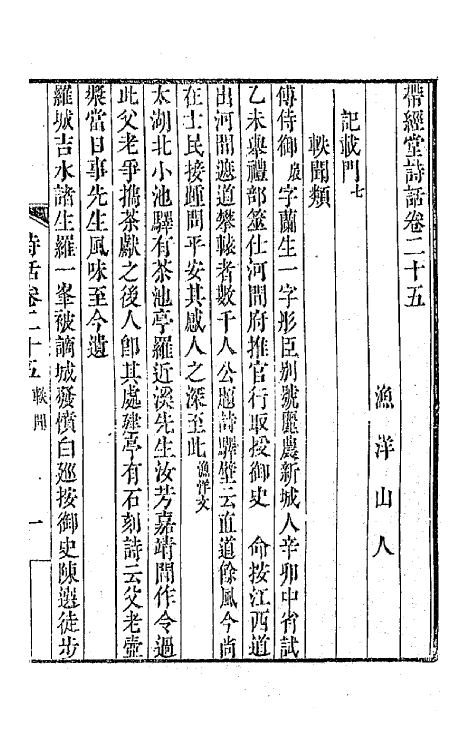 帶經堂詩話卷二十五
漁洋山人
記載門七
軼聞類
傅侍御扆字蘭生一字彤臣別號麗農新城人辛卯中省試
乙未舉禮部筮仕河間府推官行取授御史　命按江西道
出河間遮道攀轅者數千人公題詩驛壁云直道餘風今尚
在士民接踵問平安其感人之深至此漁洋文
太湖北小池驛有茶池亭羅近溪先生汝芳嘉靖間作令過
此父老爭攜茶獻之後人卽其處建亭有石刻詩云父老壺
漿當日事先生風味至今遺
羅城吉水諸生羅一峯被謫城發憤白廵按御史陳選徒步
詩話卷二十五　軼聞　一